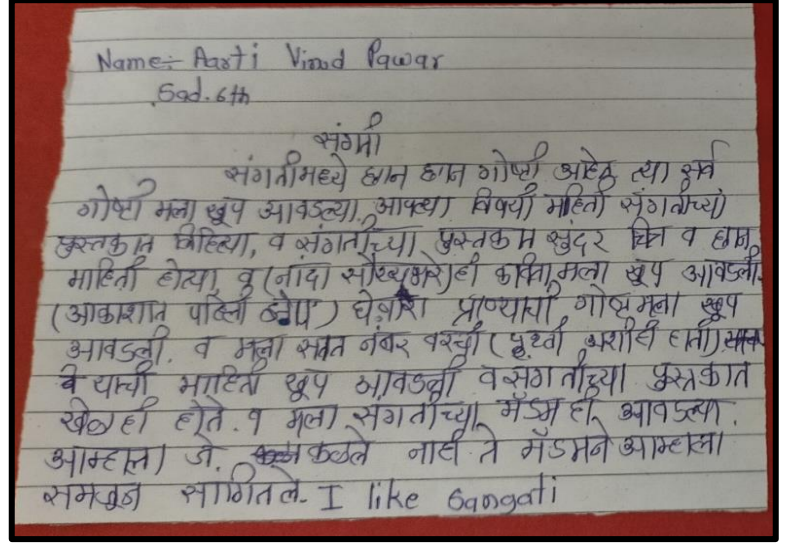 Name:- Aarti Vinod Pawar
Sad. 6th
संगती
संगतीमध्ये छान छान गोष्टी आहेत त्या सर्व
गोष्टी मला खूप आवडल्या. आपल्या विषयी माहिती संगतीच्या
पुस्तकात लिहिल्या, व संगतीच्या पुस्तकात सुंदर चित्र व छान
माहिती होत्या, व (नांदा सौख्यभरे) ही कविता मला खूप आवडली.
(आकाशात पहिली झेप) घेणारा प्राण्याची गोष्ट मला खूप
आवडली. व मला सात नंबर वरची (पृथ्वी अशीही होती)
व याची माहिती खूप आवडली व संगतीच्या पुस्तकात
खेळही होते. व मला संगतीच्या मॅडम ही आवडल्या.
आम्हाला जे. कळले नाही ते मॅडमने आम्हाला
समजून सांगितले. I like Sangati